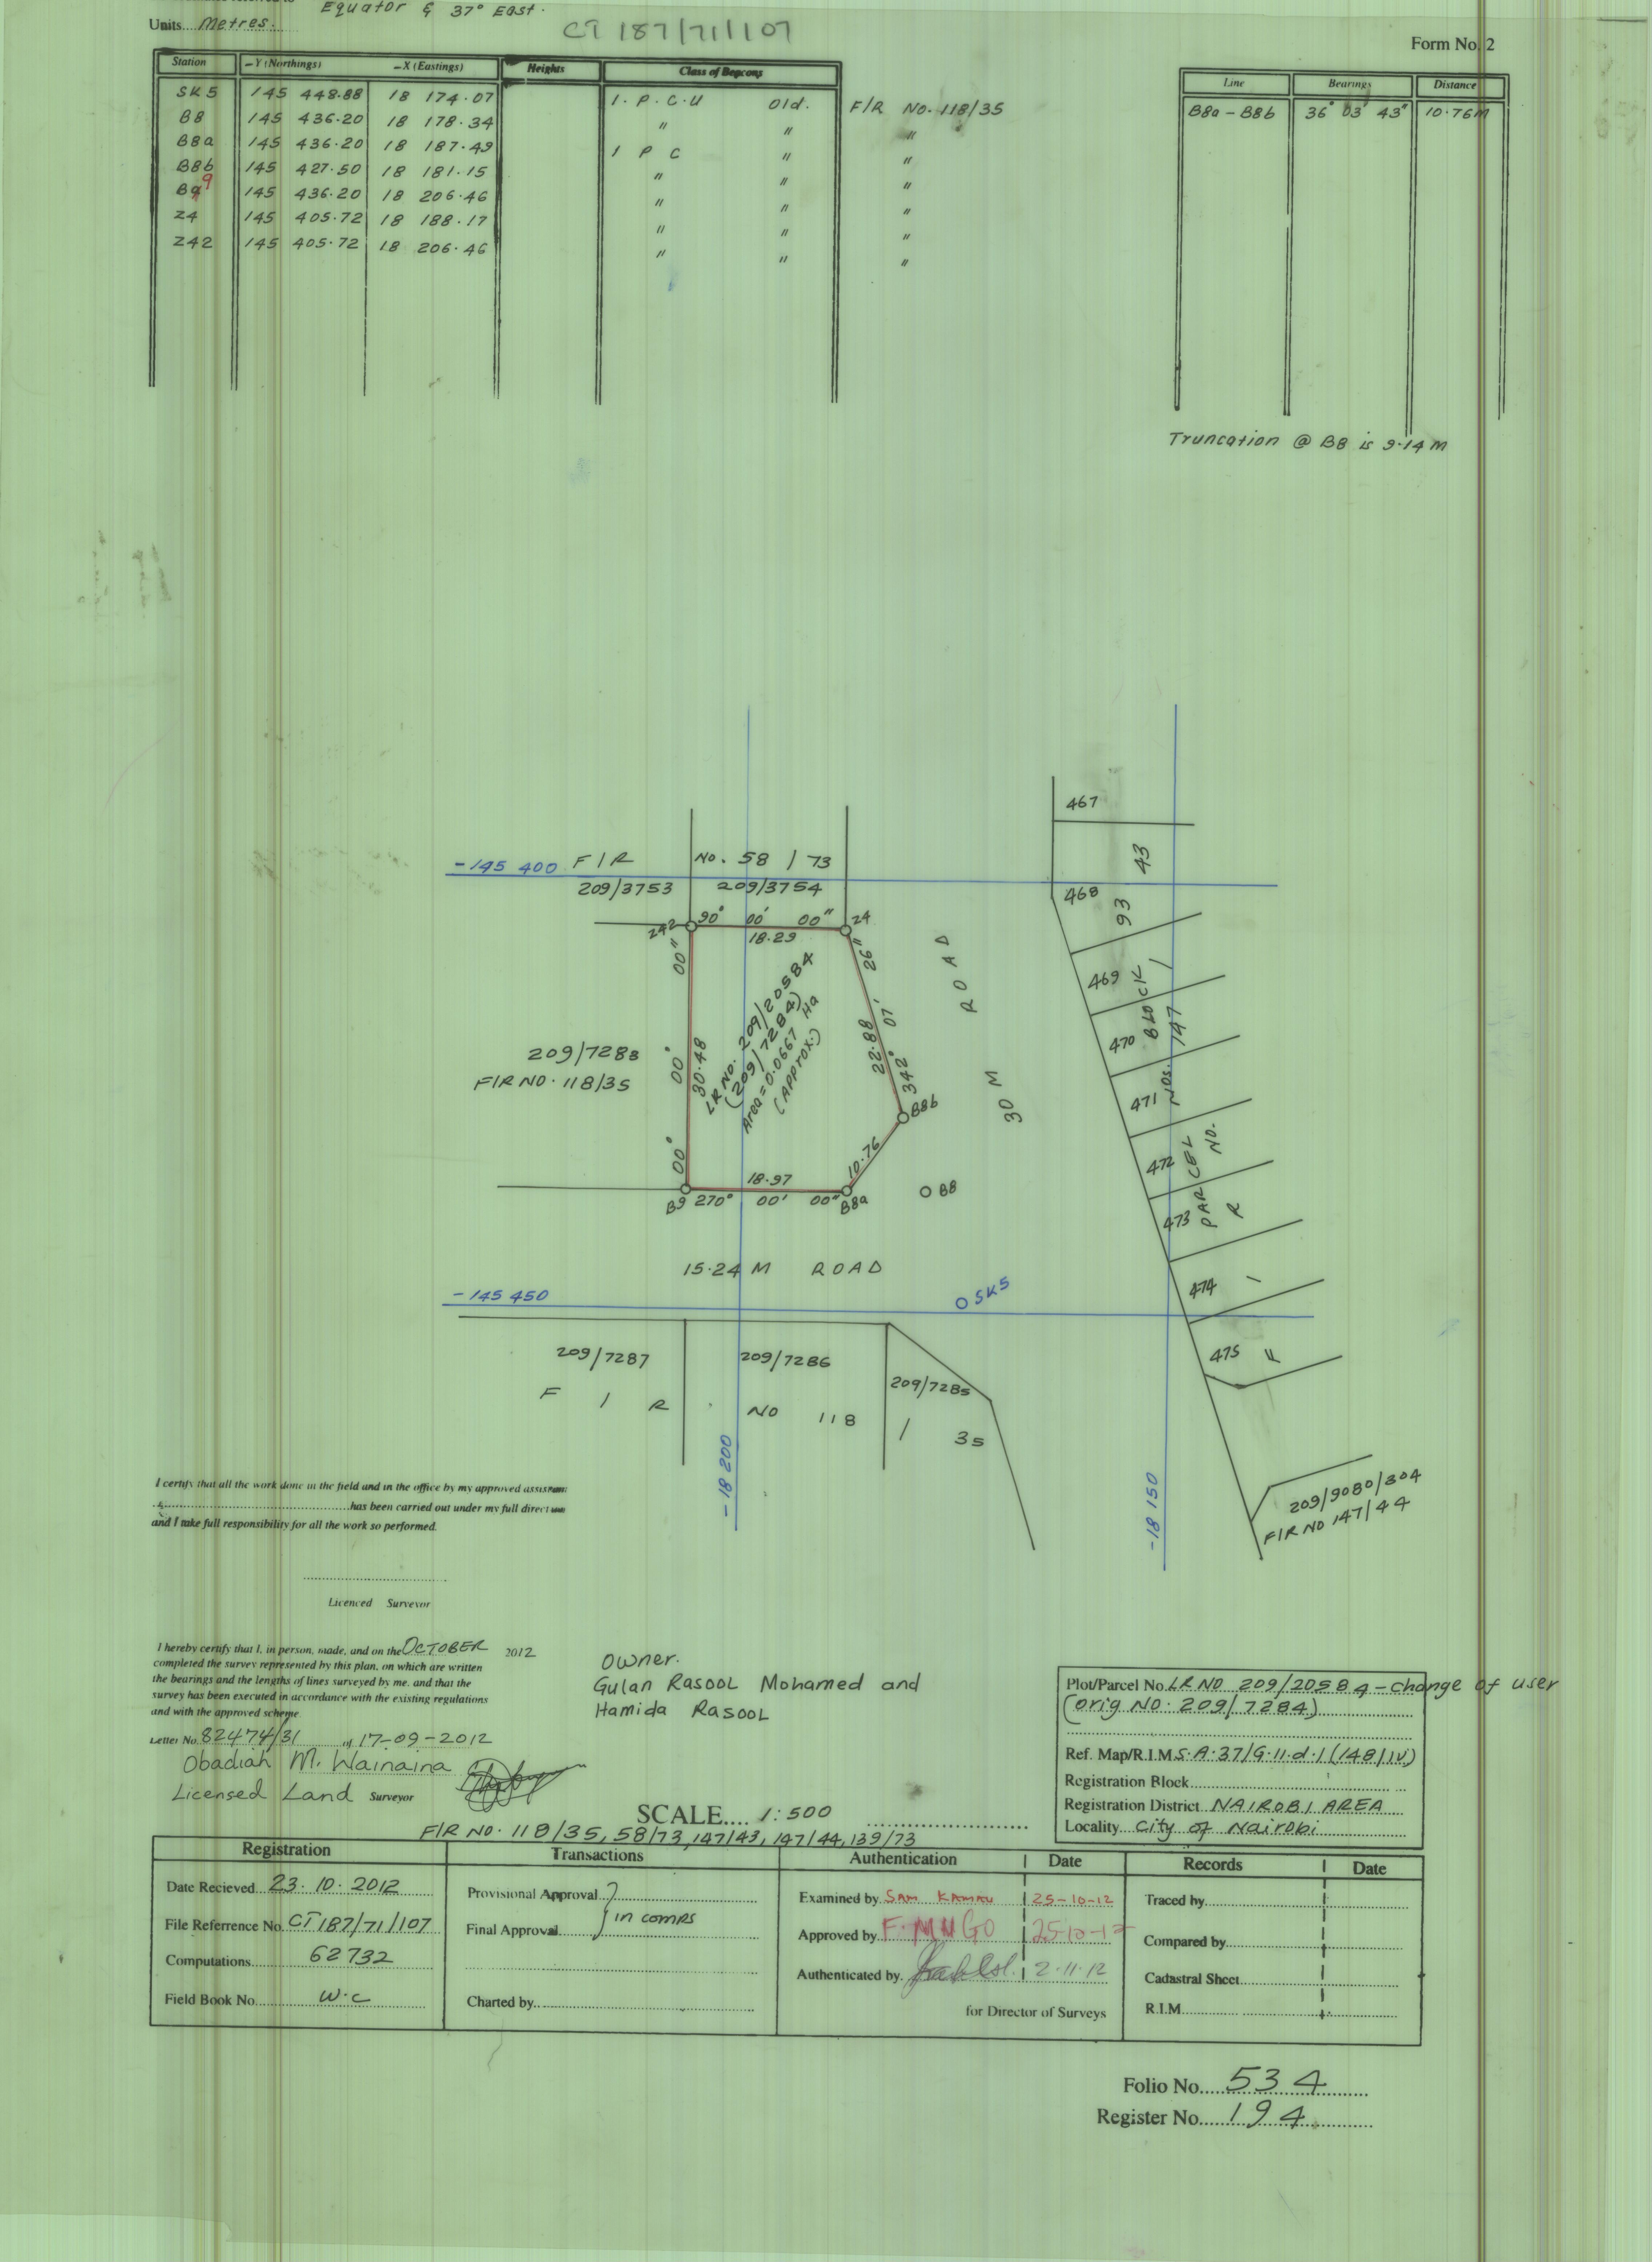 Equator & 37° East.
Units....Metres.
CT 187/71/107
Form No. 2
Station –Y (Northings) –X (Eastings) Heights Class of Beacons
SK5 145 448.88 18 174.07 I.P.C.U Old. F/R No. 118/35
B8 145 436.20 18 178.34 " " "
B8a 145 436.20 18 187.49 I P C " "
B8b 145 427.50 18 181.15 " " "
B9 9 145 436.20 18 206.46 " " "
Z4 145 405.72 18 188.17 " " "
Z42 145 405.72 18 206.46 " " "
Line Bearings Distance
B8a – B8b 36° 03' 43" 10.76M
Truncation @ B8 is 9.14 M
467
43
-145 400 F/R No. 58 / 73
209/3753 209/3754
468
93
Z42 90° 00' 00" Z4
18.29
00° 00' 00"
30.48
LR NO. 209/20584
(209/7284)
Area = 0.0667 Ha
(APPROX.)
22.88
342° 07' 26"
ROAD
30 M
469
BLOCK /
470
147
471
NOS.
472
PARCEL
NO.
473
R
209/7283
F/R NO. 118/35
B8b
10.76
18.97
B9 270° 00' 00" B8a
B8
15.24 M ROAD
474
/
-145 450
SK5
475
F
209/7287 209/7286
209/7285
F / R NO 118 / 35
-18 200
-18 150
209/9080/304
F/R NO 147/44
I certify that all the work done in the field and in the office by my approved
has been carried out under my full
and I take full responsibility for all the work so performed.
Licenced Surveyor
I hereby certify that I, in person, made, and on the OCTOBER 2012
completed the survey represented by this plan, on which are written
the bearings and the lengths of lines surveyed by me, and that the
survey has been executed in accordance with the existing regulations
and with the approved scheme
Letter No. 82474/31 of 17-09-2012
Obadiah M. Wainaina
Licensed Land Surveyor
Owner.
Gulan Rasool Mohamed and
Hamida Rasool
Plot/Parcel No. LR NO 209/20584 – change of user
(orig NO. 209/7284)
Ref. Map/R.I.M S.A.37/G.11.d.1 (148/IV)
Registration Block
Registration District NAIROBI AREA
Locality City of Nairobi
SCALE.... 1:500
F/R NO. 118/35, 58/73, 147/43, 147/44, 139/73
Registration Transactions Authentication Date Records Date
Date Recieved 23.10.2012
File Referrence No. CT 187/71/107
Computations 62732
Field Book No. W.C
Provisional Approval
Final Approval
in comps
Charted by
Examined by SAM KAMAU 25-10-12
Approved by F. MUGO 25-10-12
Authenticated by 2.11.12
for Director of Surveys
Traced by
Compared by
Cadastral Sheet
R.I.M
Folio No. 534
Register No. 194